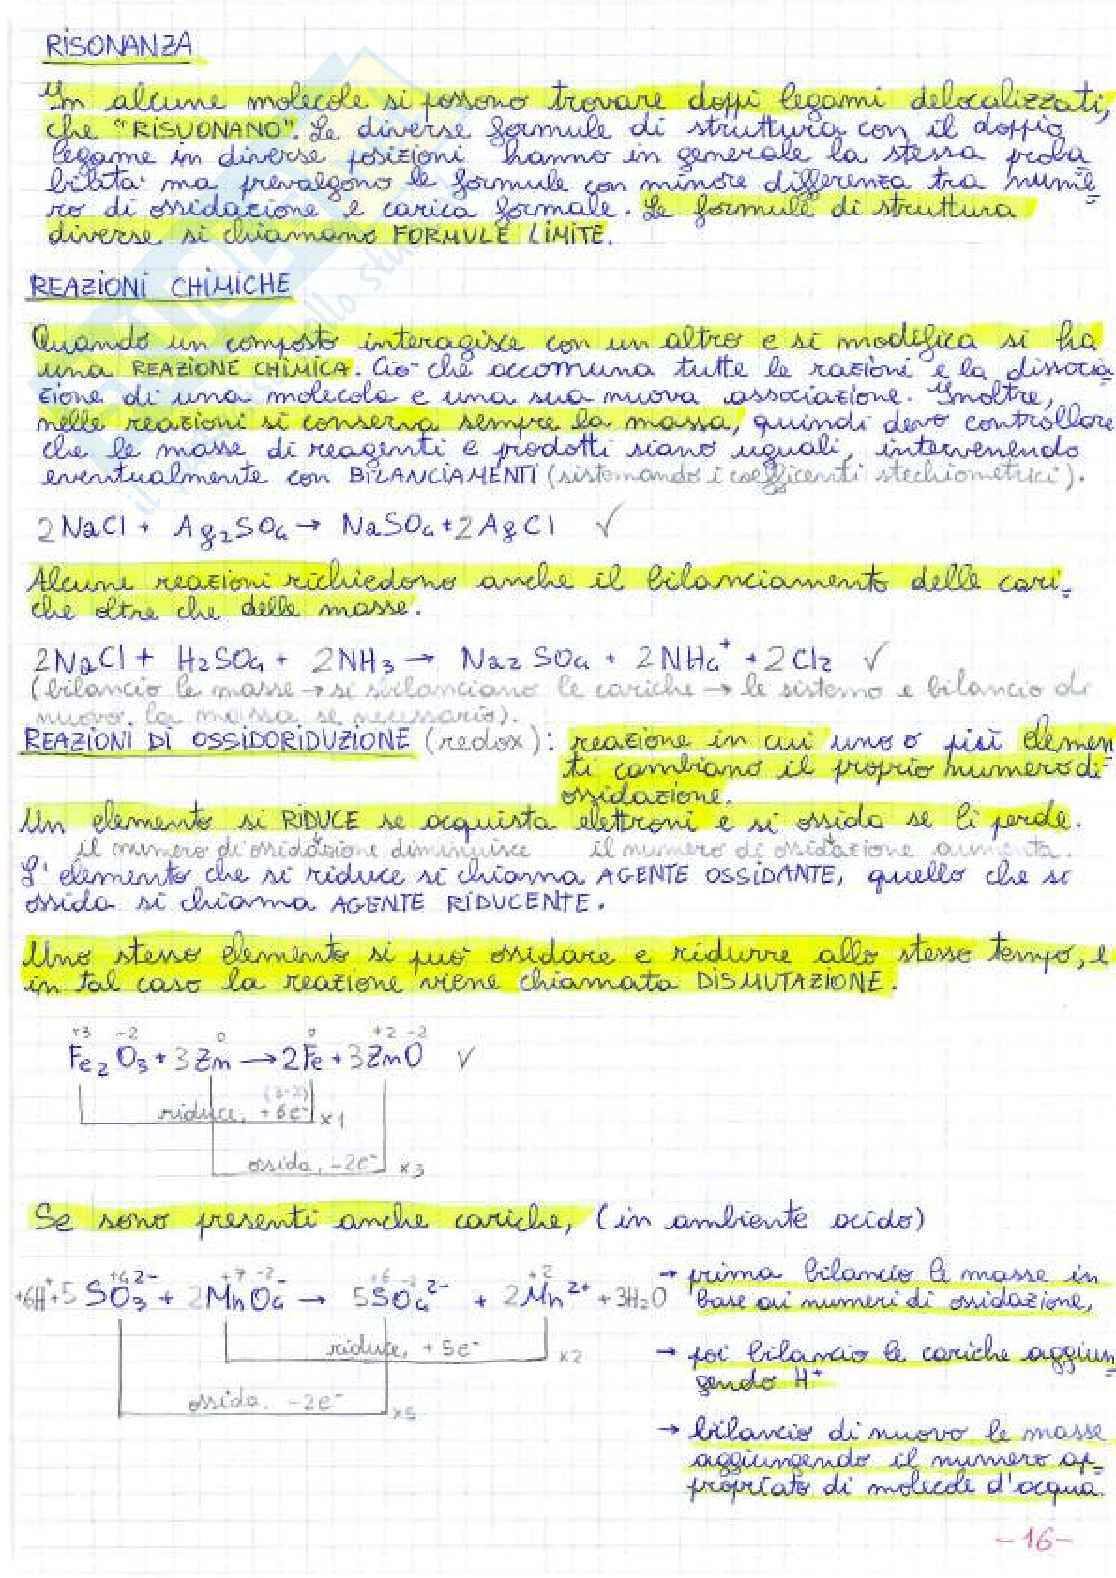 RISONANZA
In alcune molecole si possono trovare doppi legami delocalizzati,
che "RISUONANO". Le diverse formule di struttura con il doppio
legame in diverse posizioni hanno in generale la stessa proba
bilità ma prevalgono le formule con minore differenza tra nume=
ro di ossidazione e carica formale. Le formule di struttura
diverse si chiamano FORMULE LIMITE.
REAZIONI CHIMICHE
Quando un composto interagisce con un altro e si modifica si ha
una REAZIONE CHIMICA. Ciò che accomuna tutte le razioni è la dissocia=
zione di una molecola e una sua nuova associazione. Inoltre,
nelle reazioni si conserva sempre la massa, quindi devo controllare
che le masse di reagenti e prodotti siano uguali, intervenendo
eventualmente con BILANCIAMENTI (sistemando i coefficenti stechiometrici).
2NaCl + Ag₂SO₄ → NaSO₄ + 2AgCl ✓
Alcune reazioni richiedono anche il bilanciamento delle cari=
che oltre che delle masse.
2NaCl + H₂SO₄ + 2NH₃ → Na₂SO₄ + 2NH₄⁺ + 2Cl₂ ✓
(bilancio le masse → si sbilanciano le cariche → le sistemo e bilancio di
nuovo la massa se necessario).
REAZIONI DI OSSIDORIDUZIONE (redox): reazione in cui uno o più elemen
ti cambiano il proprio numero di
ossidazione.
Un elemento si RIDUCE se acquista elettroni e si ossida se li perde.
il numero di ossidazione diminuisce il numero di ossidazione aumenta.
L'elemento che si riduce si chiama AGENTE OSSIDANTE, quello che si
ossida si chiama AGENTE RIDUCENTE.
Uno stesso elemento si può ossidare e ridurre allo stesso tempo, e
in tal caso la reazione viene chiamata DISMUTAZIONE.
+3 -2 0 0 +2 -2
Fe₂O₃ + 3Zn → 2Fe + 3ZnO ✓
riduce, +6e⁻ x1
ossida, -2e⁻ x3
Se sono presenti anche cariche, (in ambiente acido)
+4 +7 -2 +6 -2 +2
+6H⁺+5SO₃²⁻ + 2MnO₄⁻ → 5SO₄²⁻ + 2Mn²⁺ + 3H₂O
riduce, +5e⁻ x2
ossida. -2e⁻ x5
→ prima bilancio le masse in
base ai numeri di ossidazione,
→ poi bilancio le cariche aggiun=
gendo H⁺
→ bilancio di nuovo le masse
aggiungendo il numero ap=
propriato di molecole d'acqua.
-16-